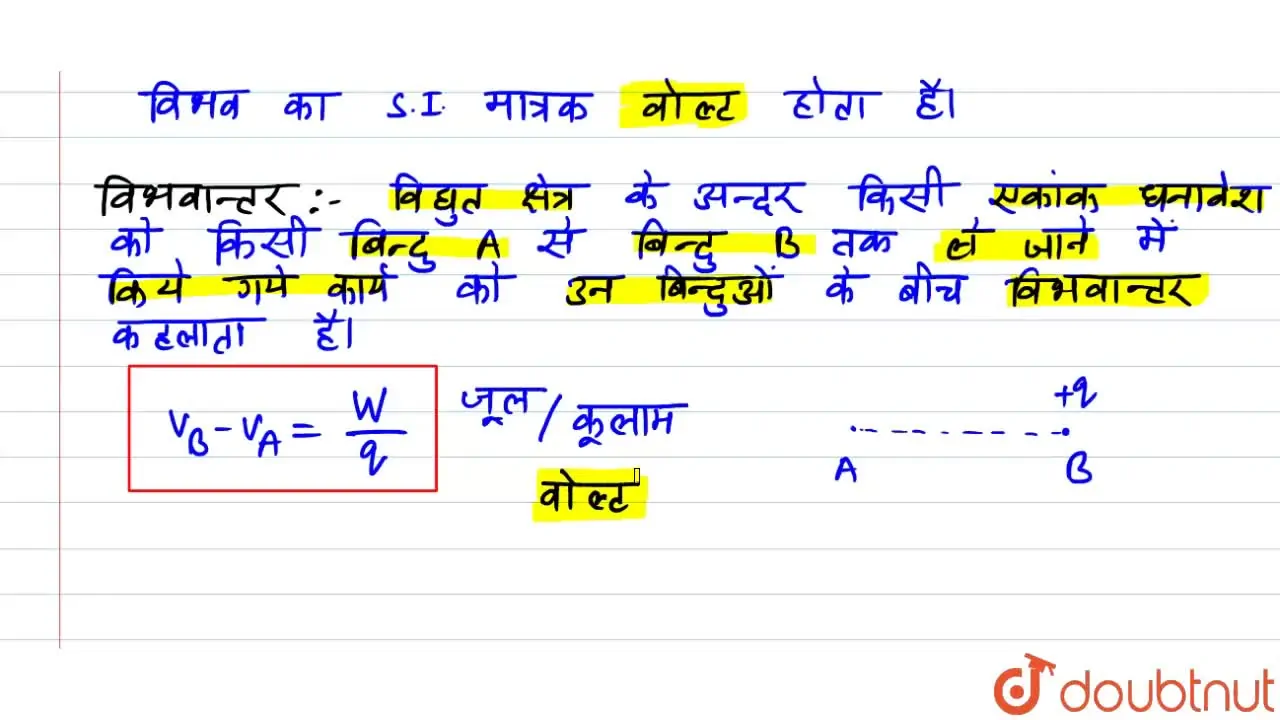 विभव का S.I. मात्रक वोल्ट होता है।
विभवान्तर :- विद्युत क्षेत्र के अन्दर किसी एकांक धनावेश
को किसी बिन्दु A से बिन्दु B तक ले जाने में
किये गये कार्य को उन बिन्दुओं के बीच विभवान्तर
कहलाता है।
V_B - V_A = W/q जूल/कूलाम
वोल्ट
+q
A B
doubtnut